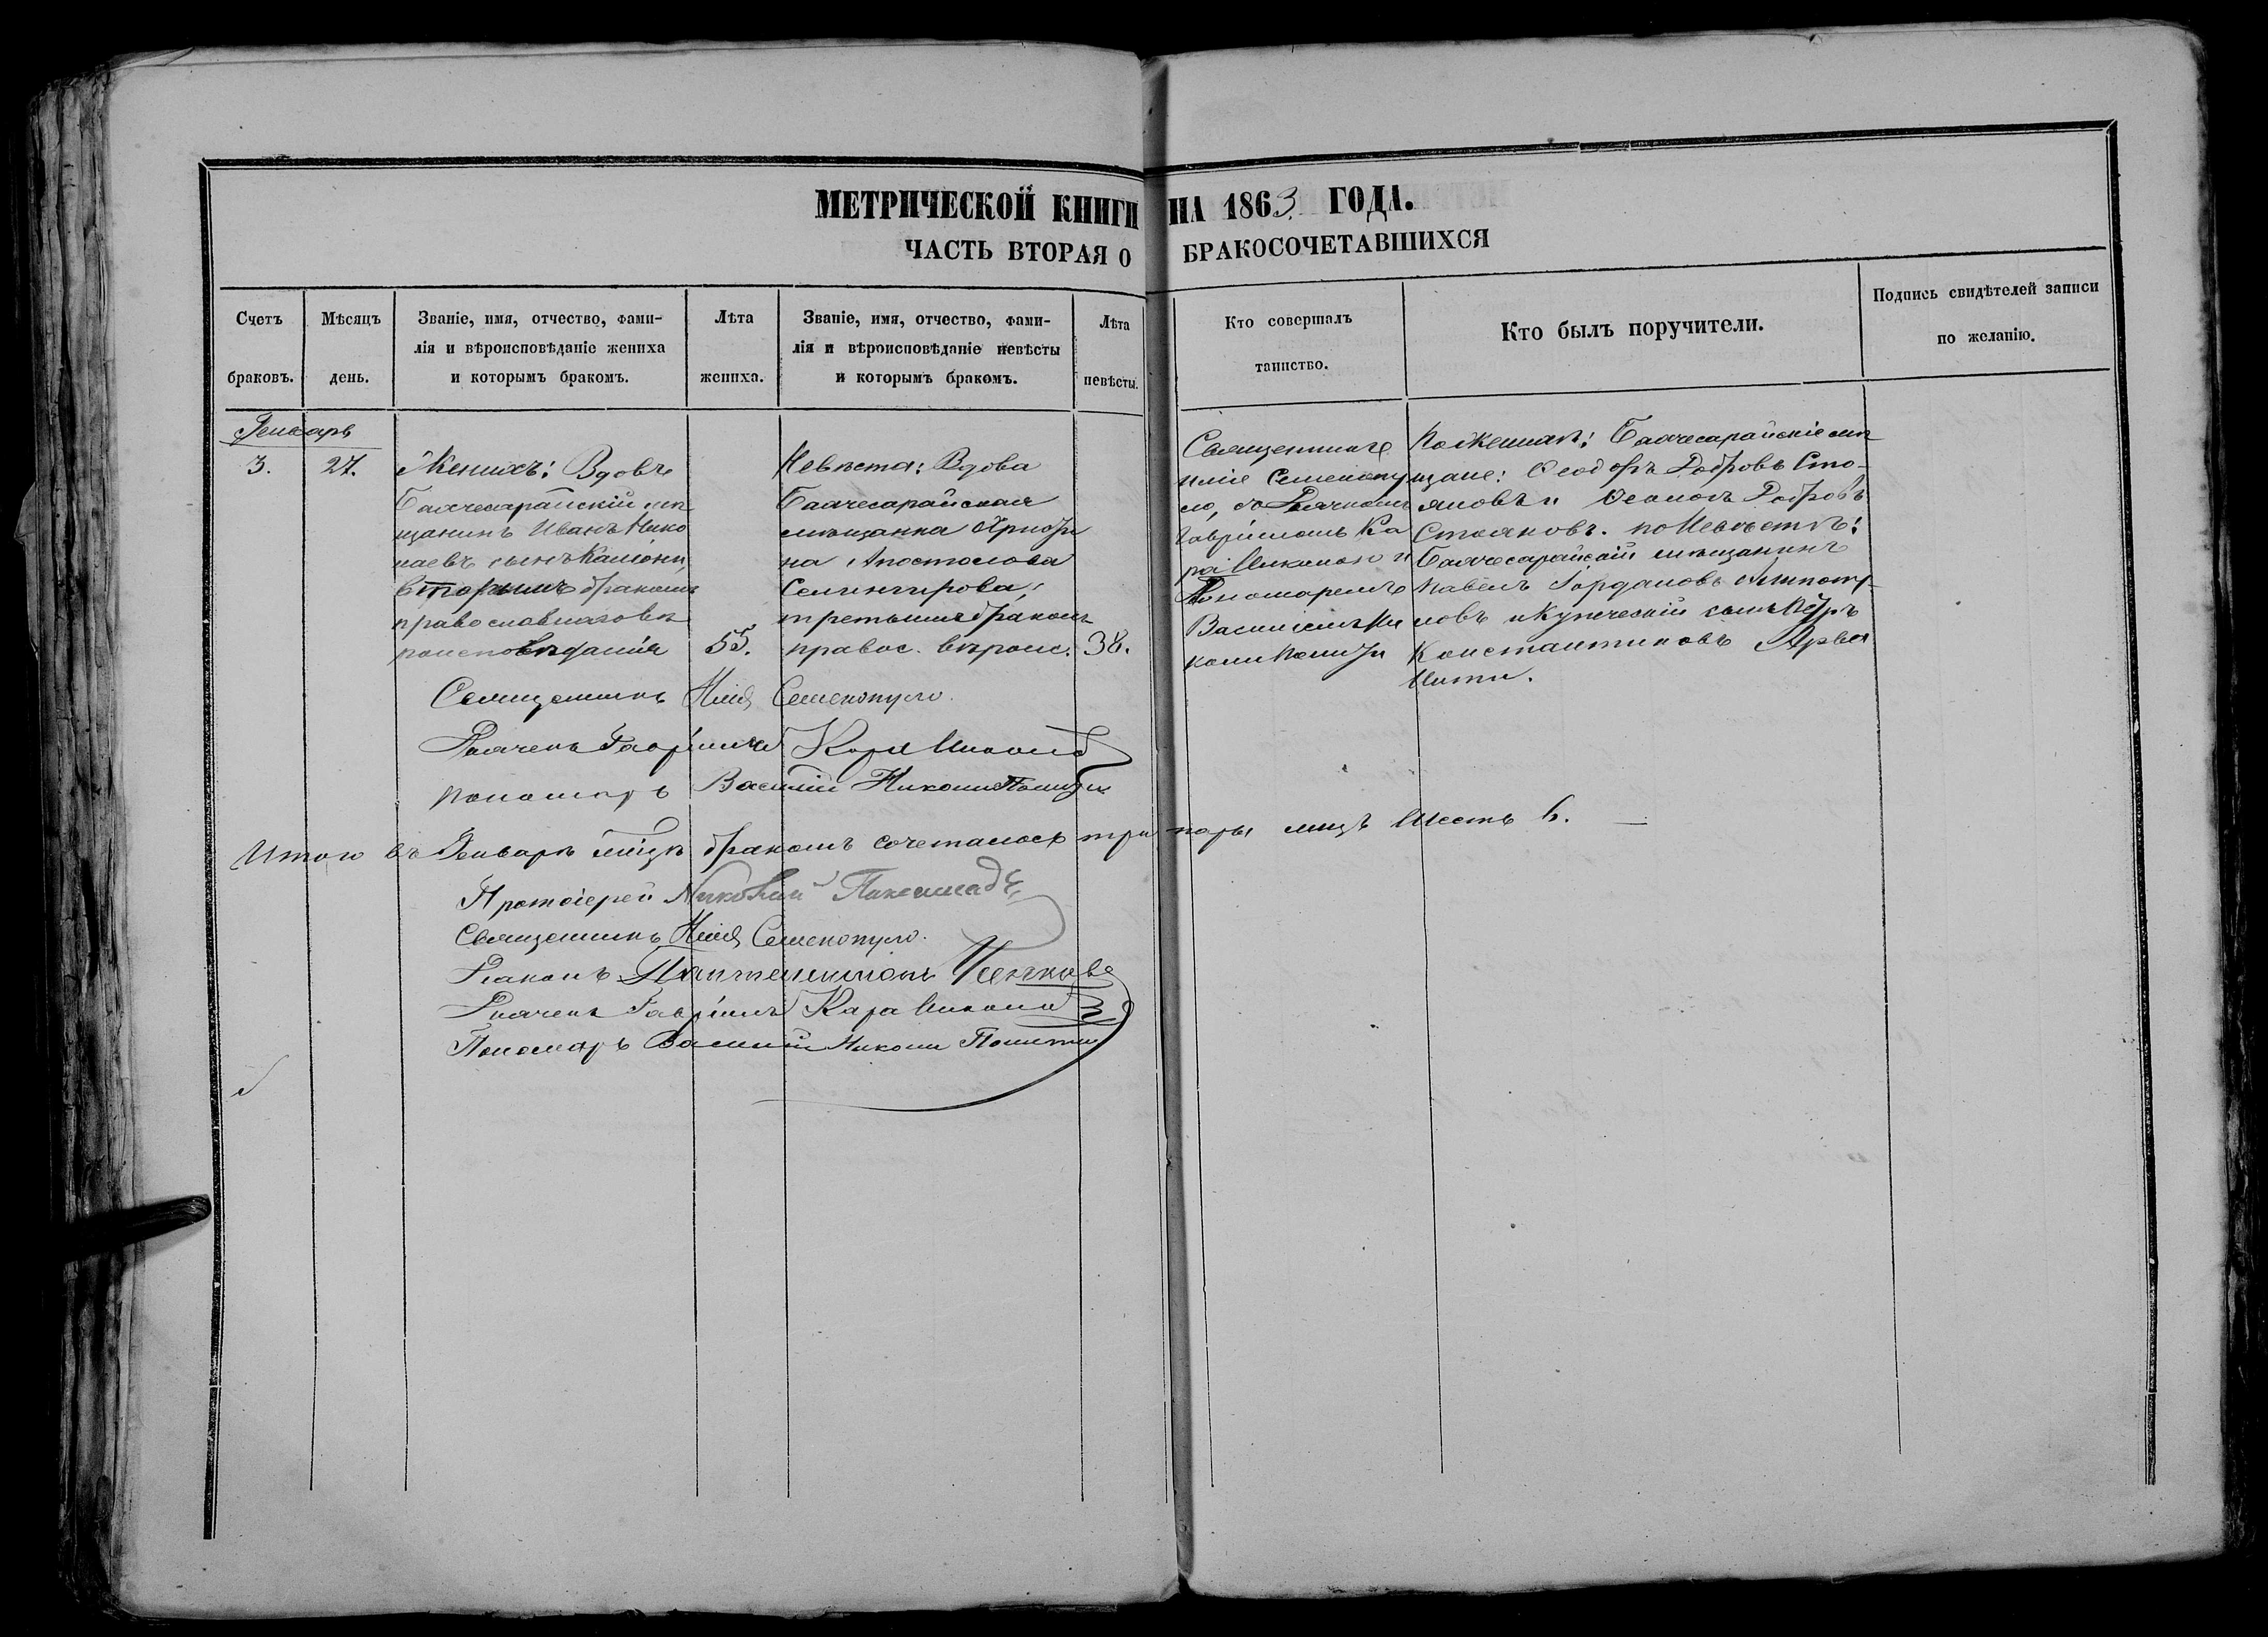 МЕТРИЧЕСКОЙ КНИГИ НА 1863. ГОДА.
ЧАСТЬ ВТОРАЯ О БРАКОСОЧЕТАВШИХСЯ
Счетъ
браковъ.
Мѣсяцъ
день.
Званіе, имя, отчество, фами-
лія и вѣроисповѣданіе жениха
и которымъ бракомъ.
Лѣта
жениха.
Званіе, имя, отчество, фами-
лія и вѣроисповѣданіе невѣсты
и которымъ бракомъ.
Лѣта
невѣсты.
Кто совершалъ
таинство.
Кто былъ поручители.
Подпись свидѣтелей записи
по желанію.
Генварь
3.
27.
Женихъ: Вдовъ
Бахчесарайскій мѣ
щанинъ Иванъ Нико
лаевъ сынъ Каліони,
вторымъ бракомъ
православнаго вѣ
роисповѣданія
55.
Невѣста: Вдова
Бахчесарайская
мѣщанка
на Апостолова
третьимъ бракомъ
правос. вѣроис.
38.
Священникъ
Илія Семенопу
ло, съ Дьячкомъ
Гавріиломъ Ка
ра Николою и
Пономаремъ
Василіемъ Ни
коли
По Женихѣ: Бахчесарайскіе мѣ
щане: Ѳеодоръ Добровъ Сто-
яновъ и Добровъ
Стояновъ. по Невѣстѣ:
Бахчесарайскій мѣщанинъ
Павелъ Іордановъ
новъ и Купеческій сынъ Петръ
Константиновъ
Священникъ Илія Семенопуло.
Дьячекъ Гавріилъ Кара Никола
Пономарь Василій Николи
Итого въ Генварѣ мѣсяцѣ бракомъ сочеталось три пары лицъ Шесть 6. —
Протоіерей Николай
Священникъ Илія Семенопуло.
Діаконъ Пантелеимонъ
Дьячекъ Гавріилъ Кара Никола
Пономарь Василій Николи